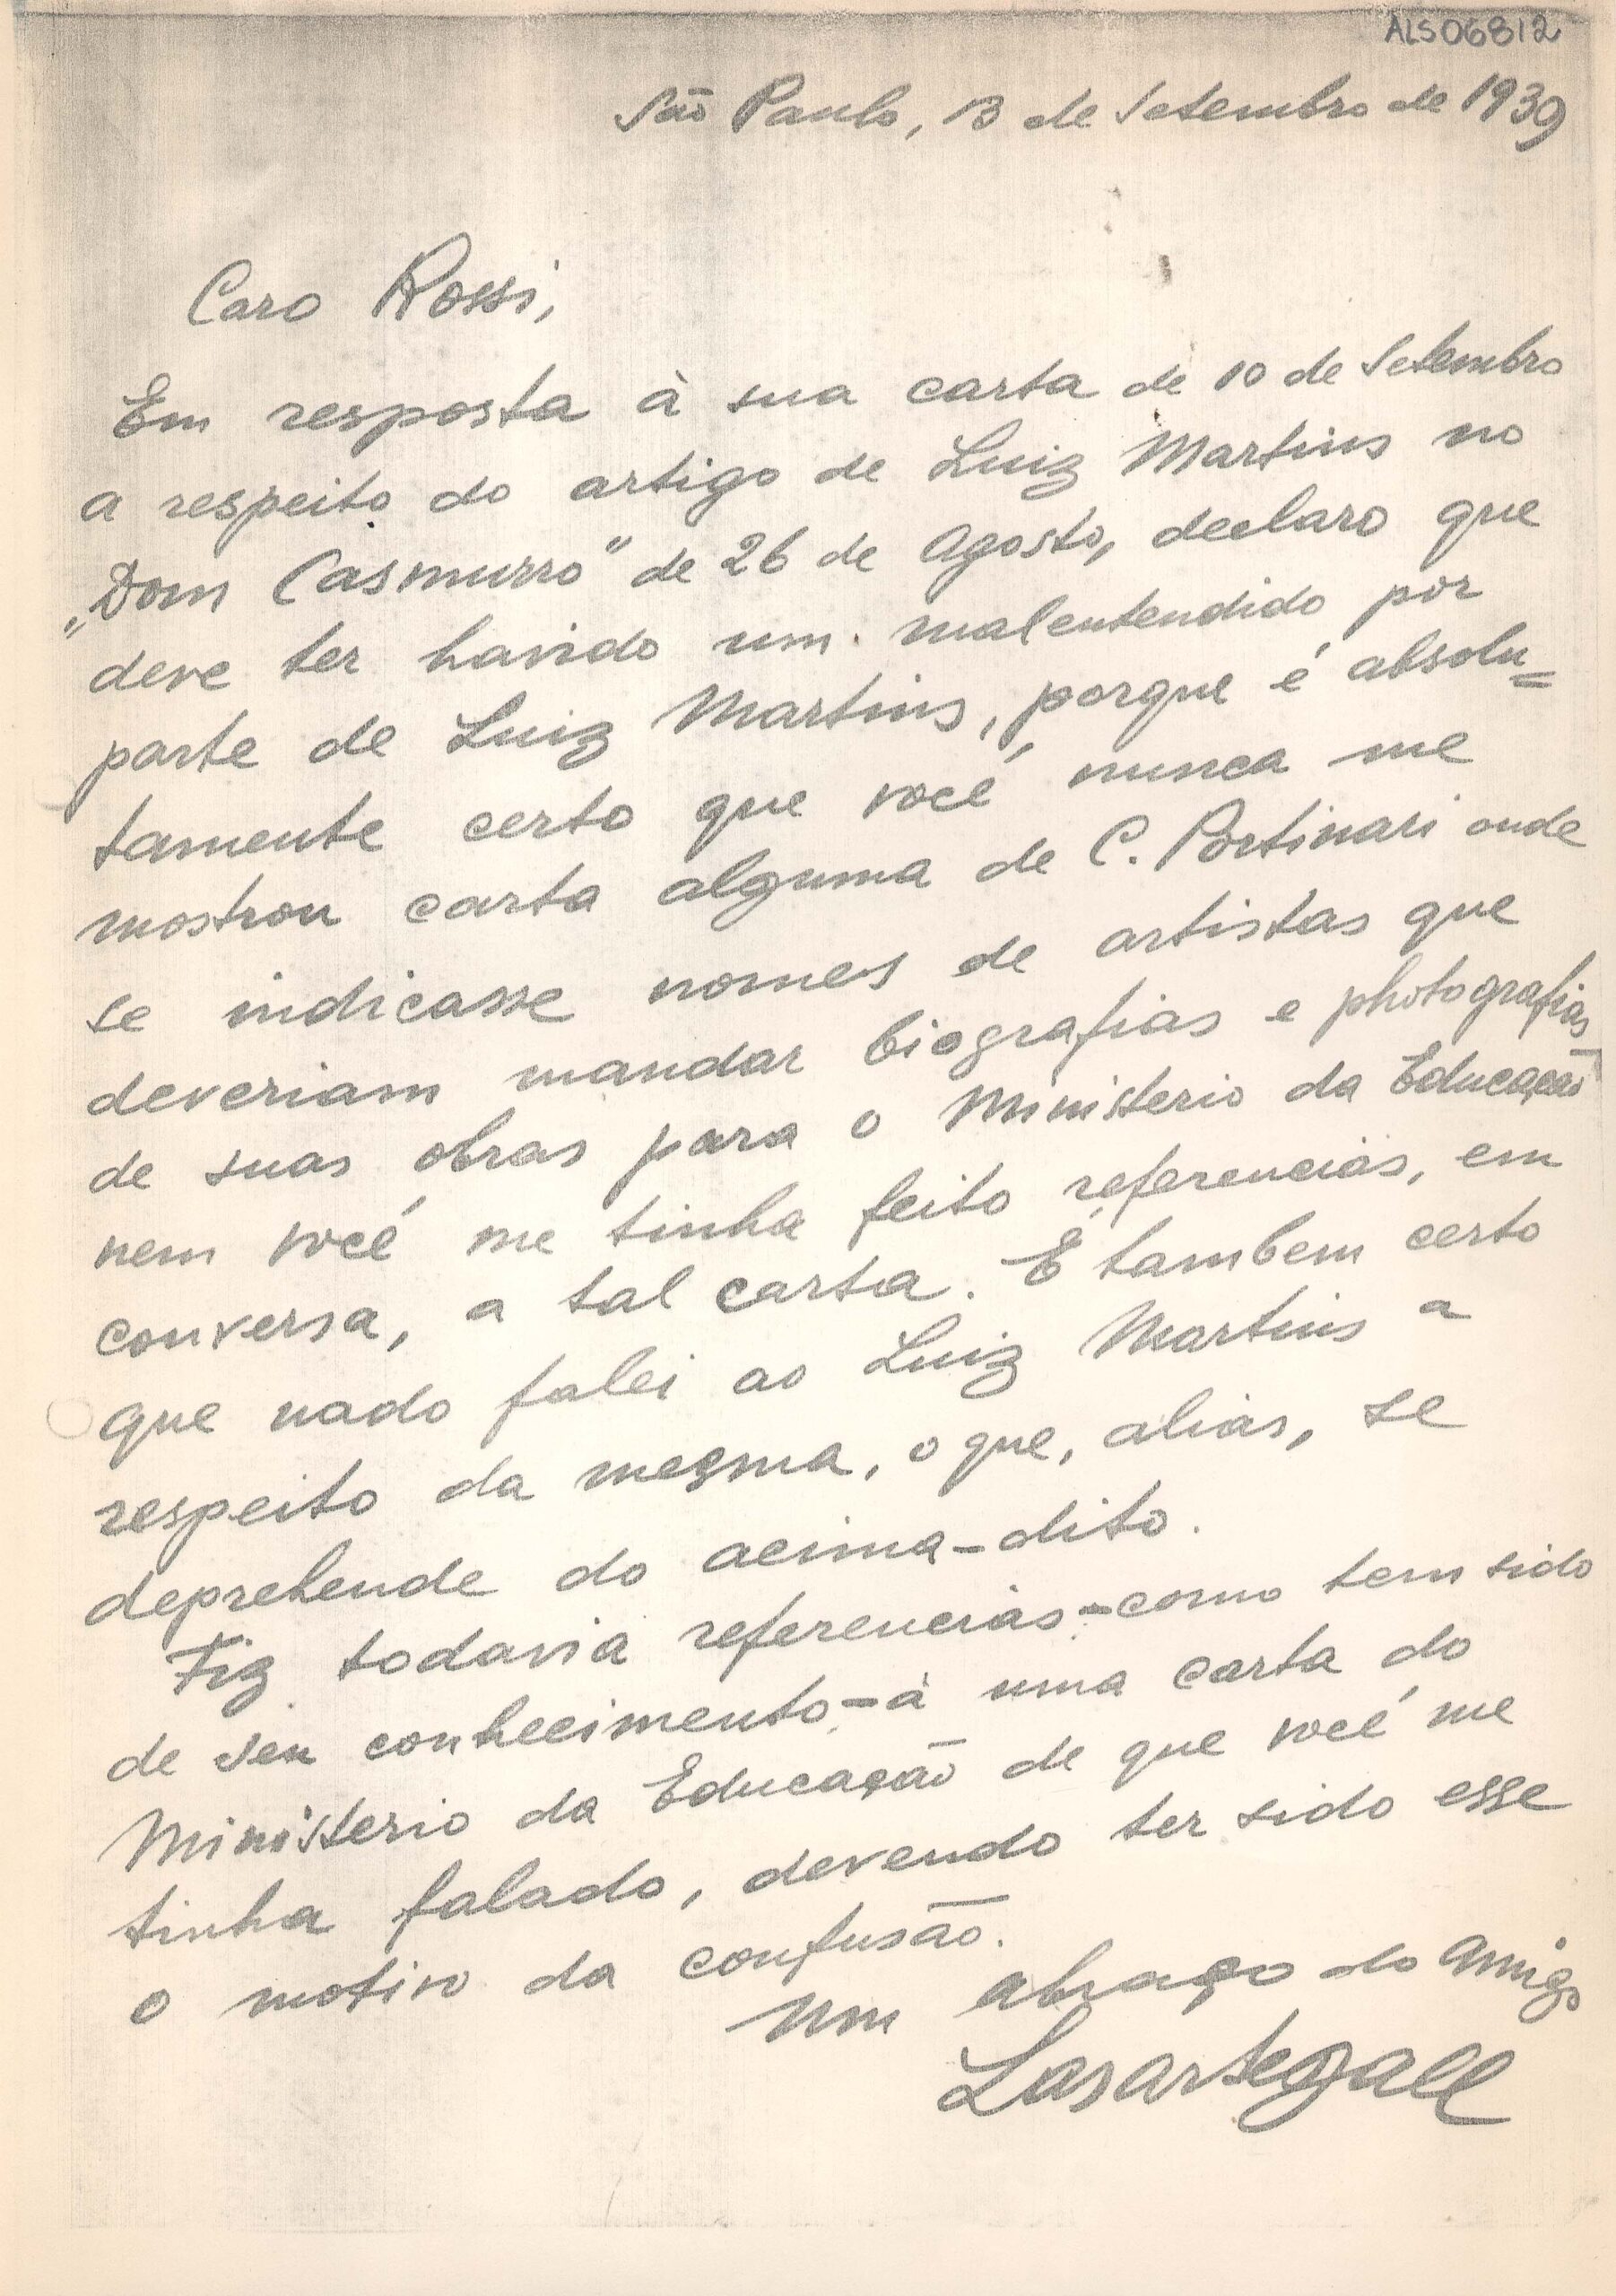 ALS06812
São Paulo, 13 de Setembro de 1939
Caro Rossi,
Em resposta à sua carta de 10 de Setembro
a respeito do artigo de Luiz Martins no
„Dom Casmurro" de 26 de Agosto, declaro que
deve ter havido um malentendido por
parte de Luiz Martins, porque é absolu=
tamente certo que você nunca me
mostrou carta alguma de C. Portinari onde
se indicasse nomes de artistas que
deveriam mandar biografias e photografias
de suas obras para o Ministerio da Educação
nem você me tinha feito referencias, em
conversa, a tal carta. É tambem certo
que nado falei ao Luiz Martins a
respeito da mesma, o que, alias, se
deprehende do acima-dito.
Fiz todavia referencias-como tem sido
de seu conhecimento-à uma carta do
Ministerio da Educação de que você me
tinha falado, devendo ter sido esse
o motivo da confusão.
Um abraço do Amigo
Lasar Segall